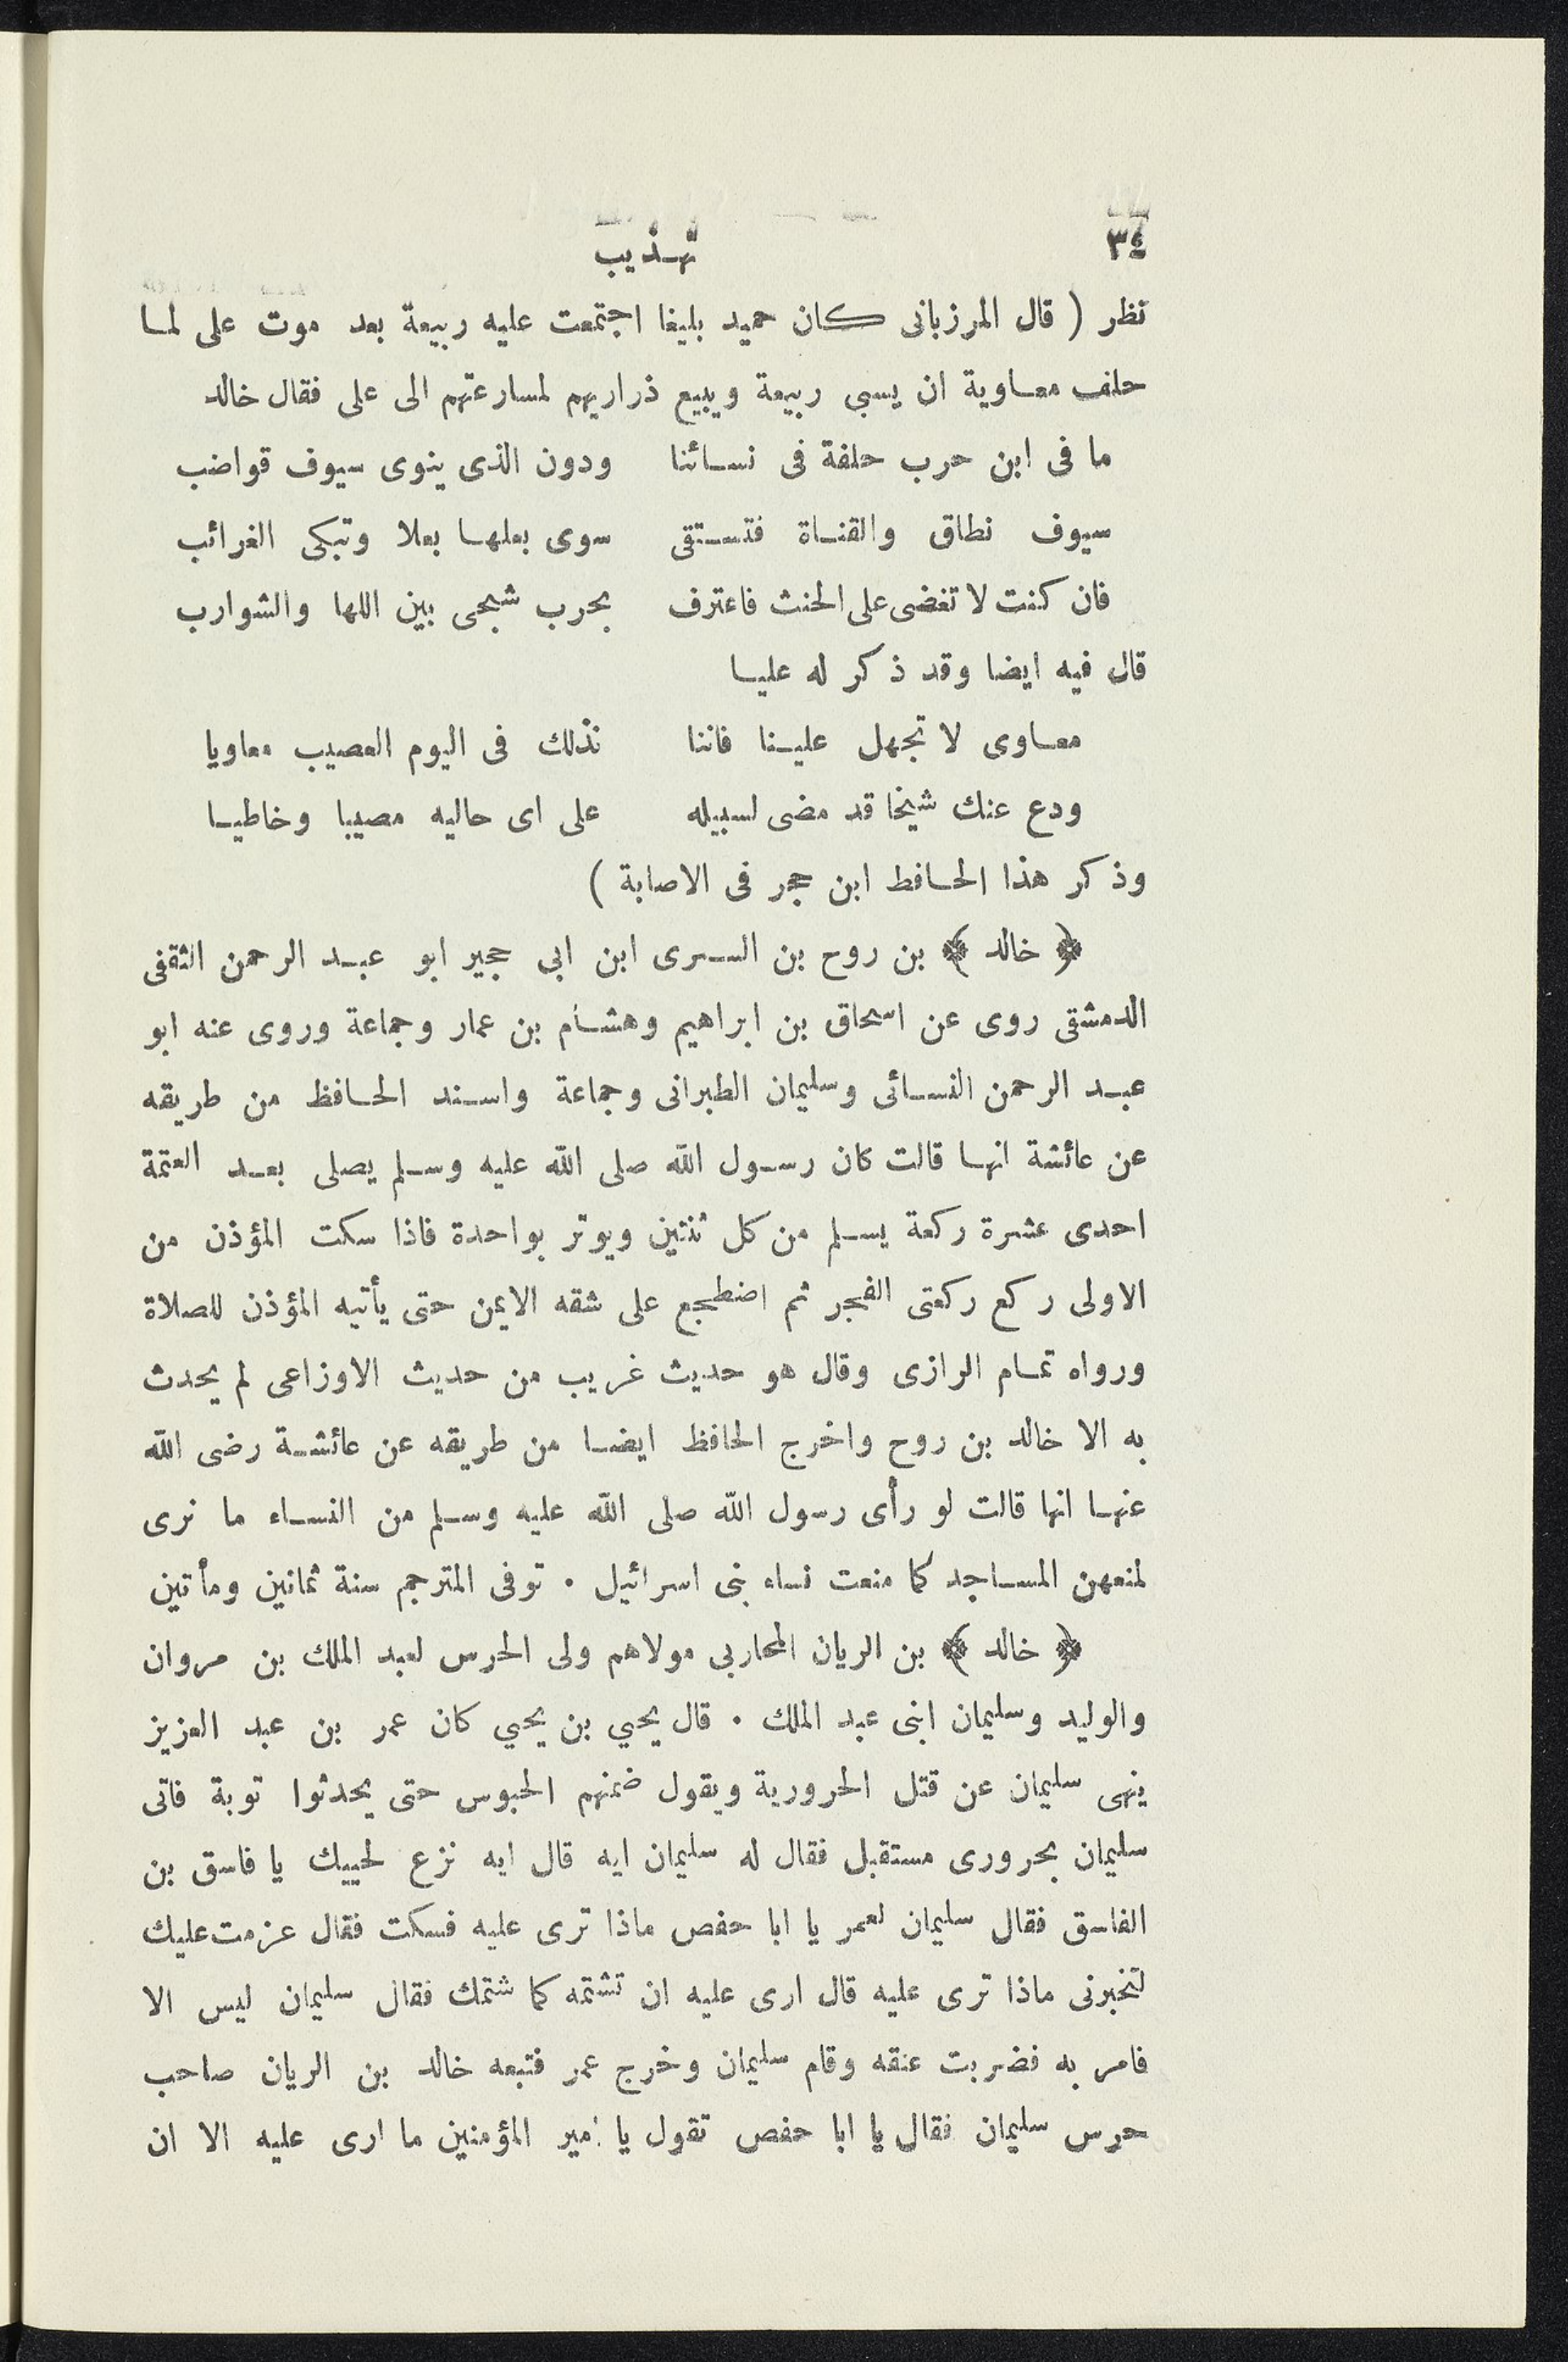 ٣٤ تهذيب
نظر ( قال المرزبانى كان حميد بليغا اجتمعت عليه ربيعة بعد موت على لما
حلف معاوية ان يسبى ربيعة ويبيع ذراريهم لمسارعتهم الى على فقال خالد
ما فى ابن حرب حلفة فى نسائنا ودون الذى ينوى سيوف قواضب
سيوف نطاق والقناة فتستقى سوى بعلها بعلا وتبكى الغرائب
فان كنت لا تغضى على الحنث فاعترف بحرب شجى بين اللها والشوارب
قال فيه ايضا وقد ذكر له عليا
معاوى لا تجهل علينا فاننا نذلك فى اليوم العصيب معاويا
ودع عنك شيخا قد مضى لسبيله على اى حاليه مصيبا وخاطيا
وذكر هذا الحافط ابن حجر فى الاصابة )
﴿ خالد ﴾ بن روح بن السرى ابن ابى حجير ابو عبد الرحمن الثقفى
الدمشقى روى عن اسحاق بن ابراهيم وهشام بن عمار وجماعة وروى عنه ابو
عبد الرحمن النسائى وسليمان الطبرانى وجماعة واسند الحافظ من طريقه
عن عائشة انها قالت كان رسول الله صلى الله عليه وسلم يصلى بعد العتمة
احدى عشرة ركعة يسلم من كل ثنتين ويوتر بواحدة فاذا سكت المؤذن من
الاولى ركع ركعتى الفجر ثم اضطجع على شقه الايمن حتى يأتيه المؤذن للصلاة
ورواه تمام الرازى وقال هو حديث غريب من حديث الاوزاعى لم يحدث
به الا خالد بن روح واخرج الحافظ ايضا من طريقه عن عائشة رضى الله
عنها انها قالت لو رأى رسول الله صلى الله عليه وسلم من النساء ما نرى
لمنعهن المساجد كما منعت نساء بنى اسرائيل . توفى المترجم سنة ثمانين ومأتين
﴿ خالد ﴾ بن الريان المحاربى مولاهم ولى الحرس لعبد الملك بن مروان
والوليد وسليمان ابنى عبد الملك . قال يحيي بن يحيي كان عمر بن عبد العزيز
ينهى سليمان عن قتل الحرورية ويقول ضمنهم الحبوس حتى يحدثوا توبة فاتى
سليمان بحرورى مستقبل فقال له سليمان ايه قال ايه نزع لحييك يا فاسق بن
الفاسق فقال سليمان لعمر يا ابا حفص ماذا ترى عليه فسكت فقال عزمت عليك
لتخبرنى ماذا ترى عليه قال ارى عليه ان تشتمه كما شتمك فقال سليمان ليس الا
فامر به فضربت عنقه وقام سليمان وخرج عمر فتبعه خالد بن الريان صاحب
حرس سليمان فقال يا ابا حفص تقول يا امير المؤمنين ما ارى عليه الا ان